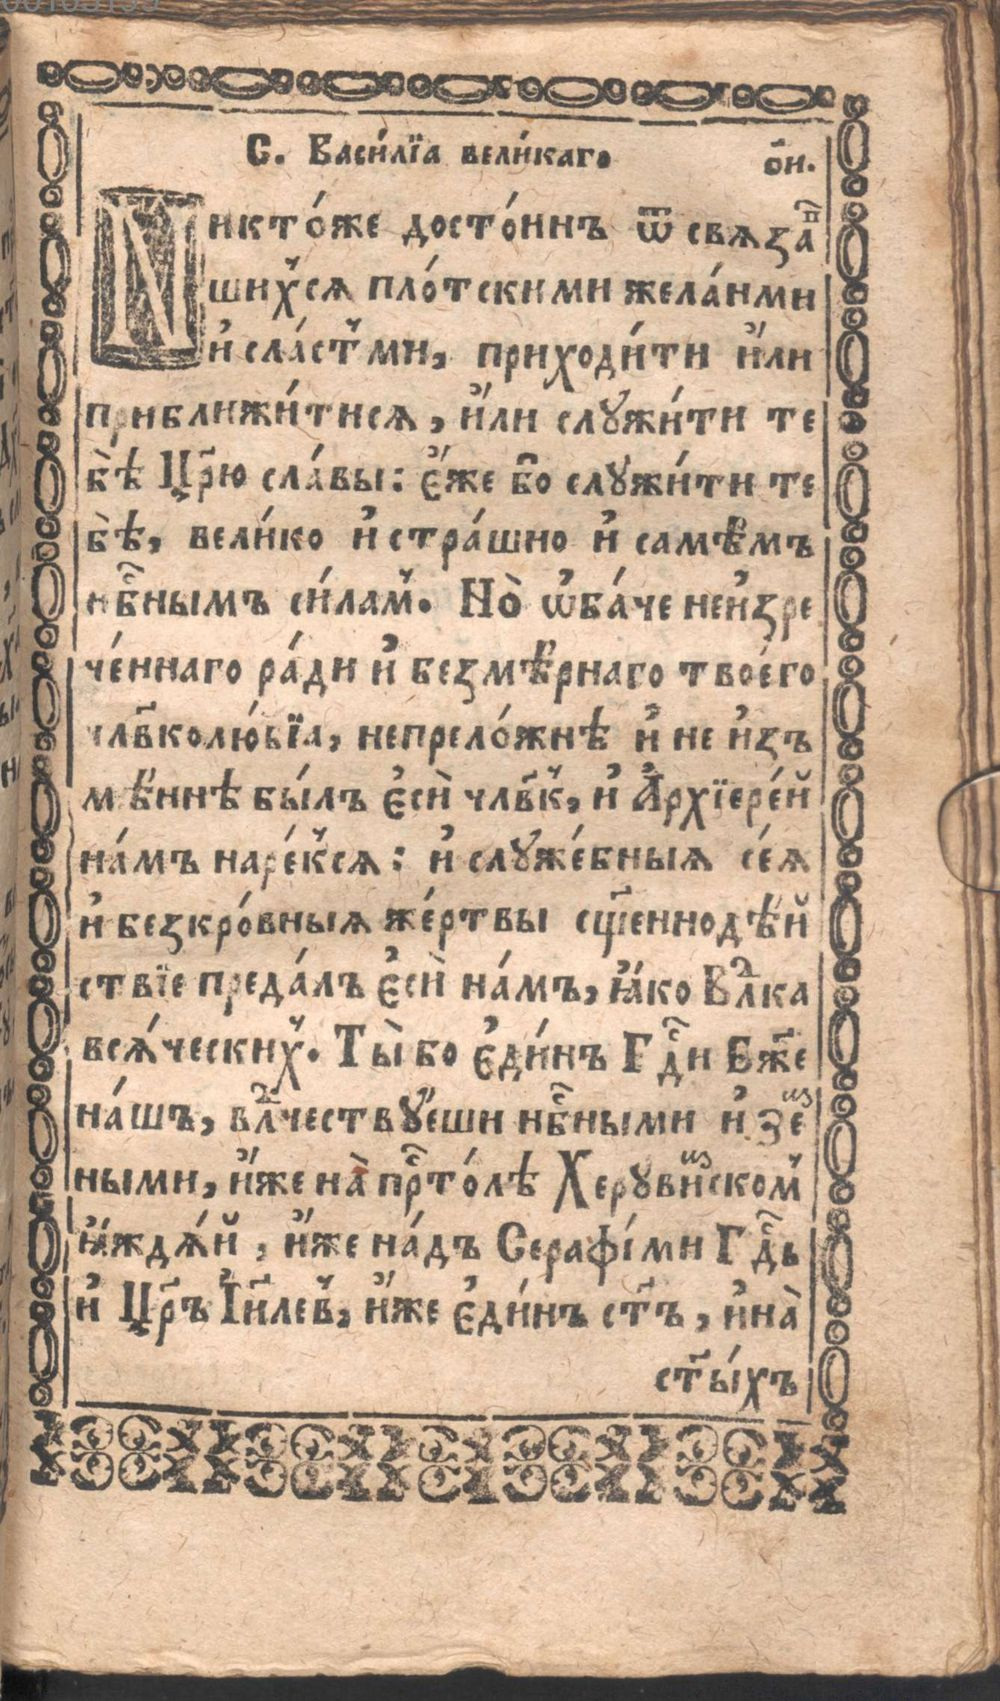 С. Васи́лїа вели́каго ѻ҃и.
Никто́же досто́инъ ѿ свѧза́
шихсѧ пло́тскими жела́нми
и҆ сла́стми, приходи́ти и҆́ли
приближи́тисѧ, и҆́ли слꙋжи́ти те
бѣ̀ Цр҃ю сла́вы: є҆́же бо слꙋжи́ти те
бѣ̀, вели́ко и҆ стра́шно и҆ самѣ́мъ
нб҃нымъ си́лам. Но̀ ѡ҆ба́че неи҆зре
че́ннаго ра́ди и҆ безмѣ́рнаго твоего̀
члв҃колю́бїа, непрело́жнѣ и҆ не и҆зъ
мѣ́ннѣ бы́лъ є҆сѝ члв҃к, и҆ А҆рхїере́й
на́мъ наре́ксѧ: и҆ слꙋже́бныѧ сеѧ̀
и҆ безкро́вныѧ же́ртвы сщ҃еннодѣ́й
ствїе преда́лъ є҆сѝ на́мъ, ꙗ҆́ко Влⷣка
всѧ́ческих. Ты̀ бо є҆ди́нъ Гдⷭ҇и Бж҃е
на́шъ, влⷣчествꙋ́еши нбⷭ҇ными и҆ зе
ными, и҆́же на̀ прⷭ҇то́лѣ Херꙋви́мском
ꙗ҆ждѧ́й, и҆́же на́дъ Серафі́ми Гдⷭ҇ь
и҆ Цр҃ъ І҆и҃лев, и҆́же є҆ди́нъ ст҃ъ, и҆ на̀
ст҃ы́хъ